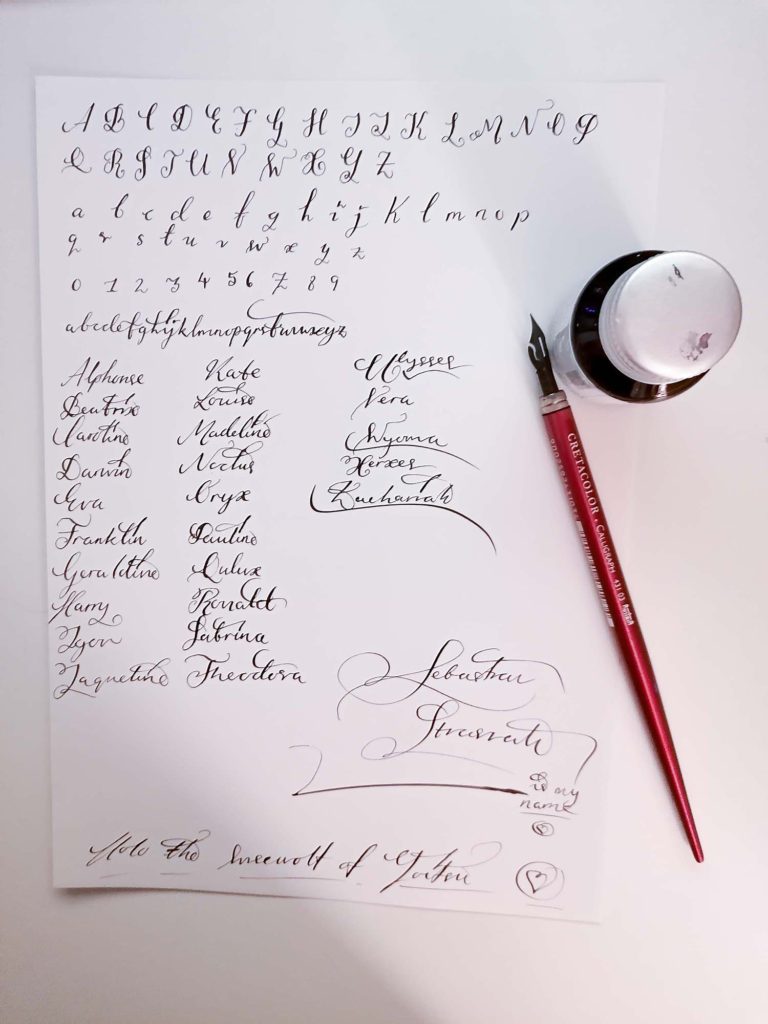 A B C D E F G H I J K L M N O P
Q R S T U V W X Y Z
a b c d e f g h i j k l m n o p
q r s t u v w x y z
0 1 2 3 4 5 6 7 8 9
abcdefghijklmnopqrstuvwxyz
Alphonse
Beatrix
Caroline
Darwin
Eva
Franklin
Geraldine
Harry
Igon
Jaqueline
Kate
Louise
Madeline
Noctus
Oryx
Pauline
Qulux
Ronald
Sabrina
Theodora
Ulysses
Vera
Wyoma
Xerxes
Zachariah
Sebastian
is my
name
Holo the of
CRETACOLOR CALLIGRAPH 431 03